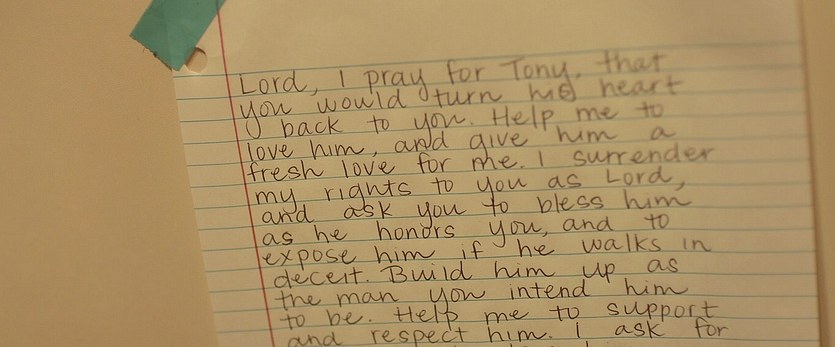 Lord, I pray for Tony, that
you would turn his heart
back to you. Help me to
love him, and give him a
fresh love for me. I surrender
my rights to you as Lord,
and ask you to bless him
as he honors you, and to
expose him if he walks in
deceit. Build him up as
the man you intend him
to be. Help me to support
and respect him. I ask for